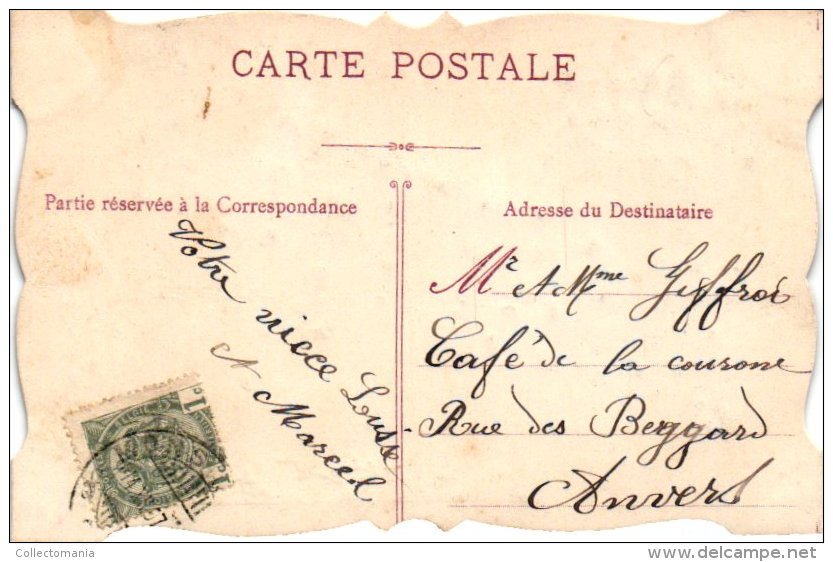 CARTE POSTALE
Partie réservée à la Correspondance
Adresse du Destinataire
Votre niece Louise
et Marcel
Mr et Mme Geffroi
Café de la couronne
Rue des Beggard
Anvers
1c
Collectomania
www.delcampe.net